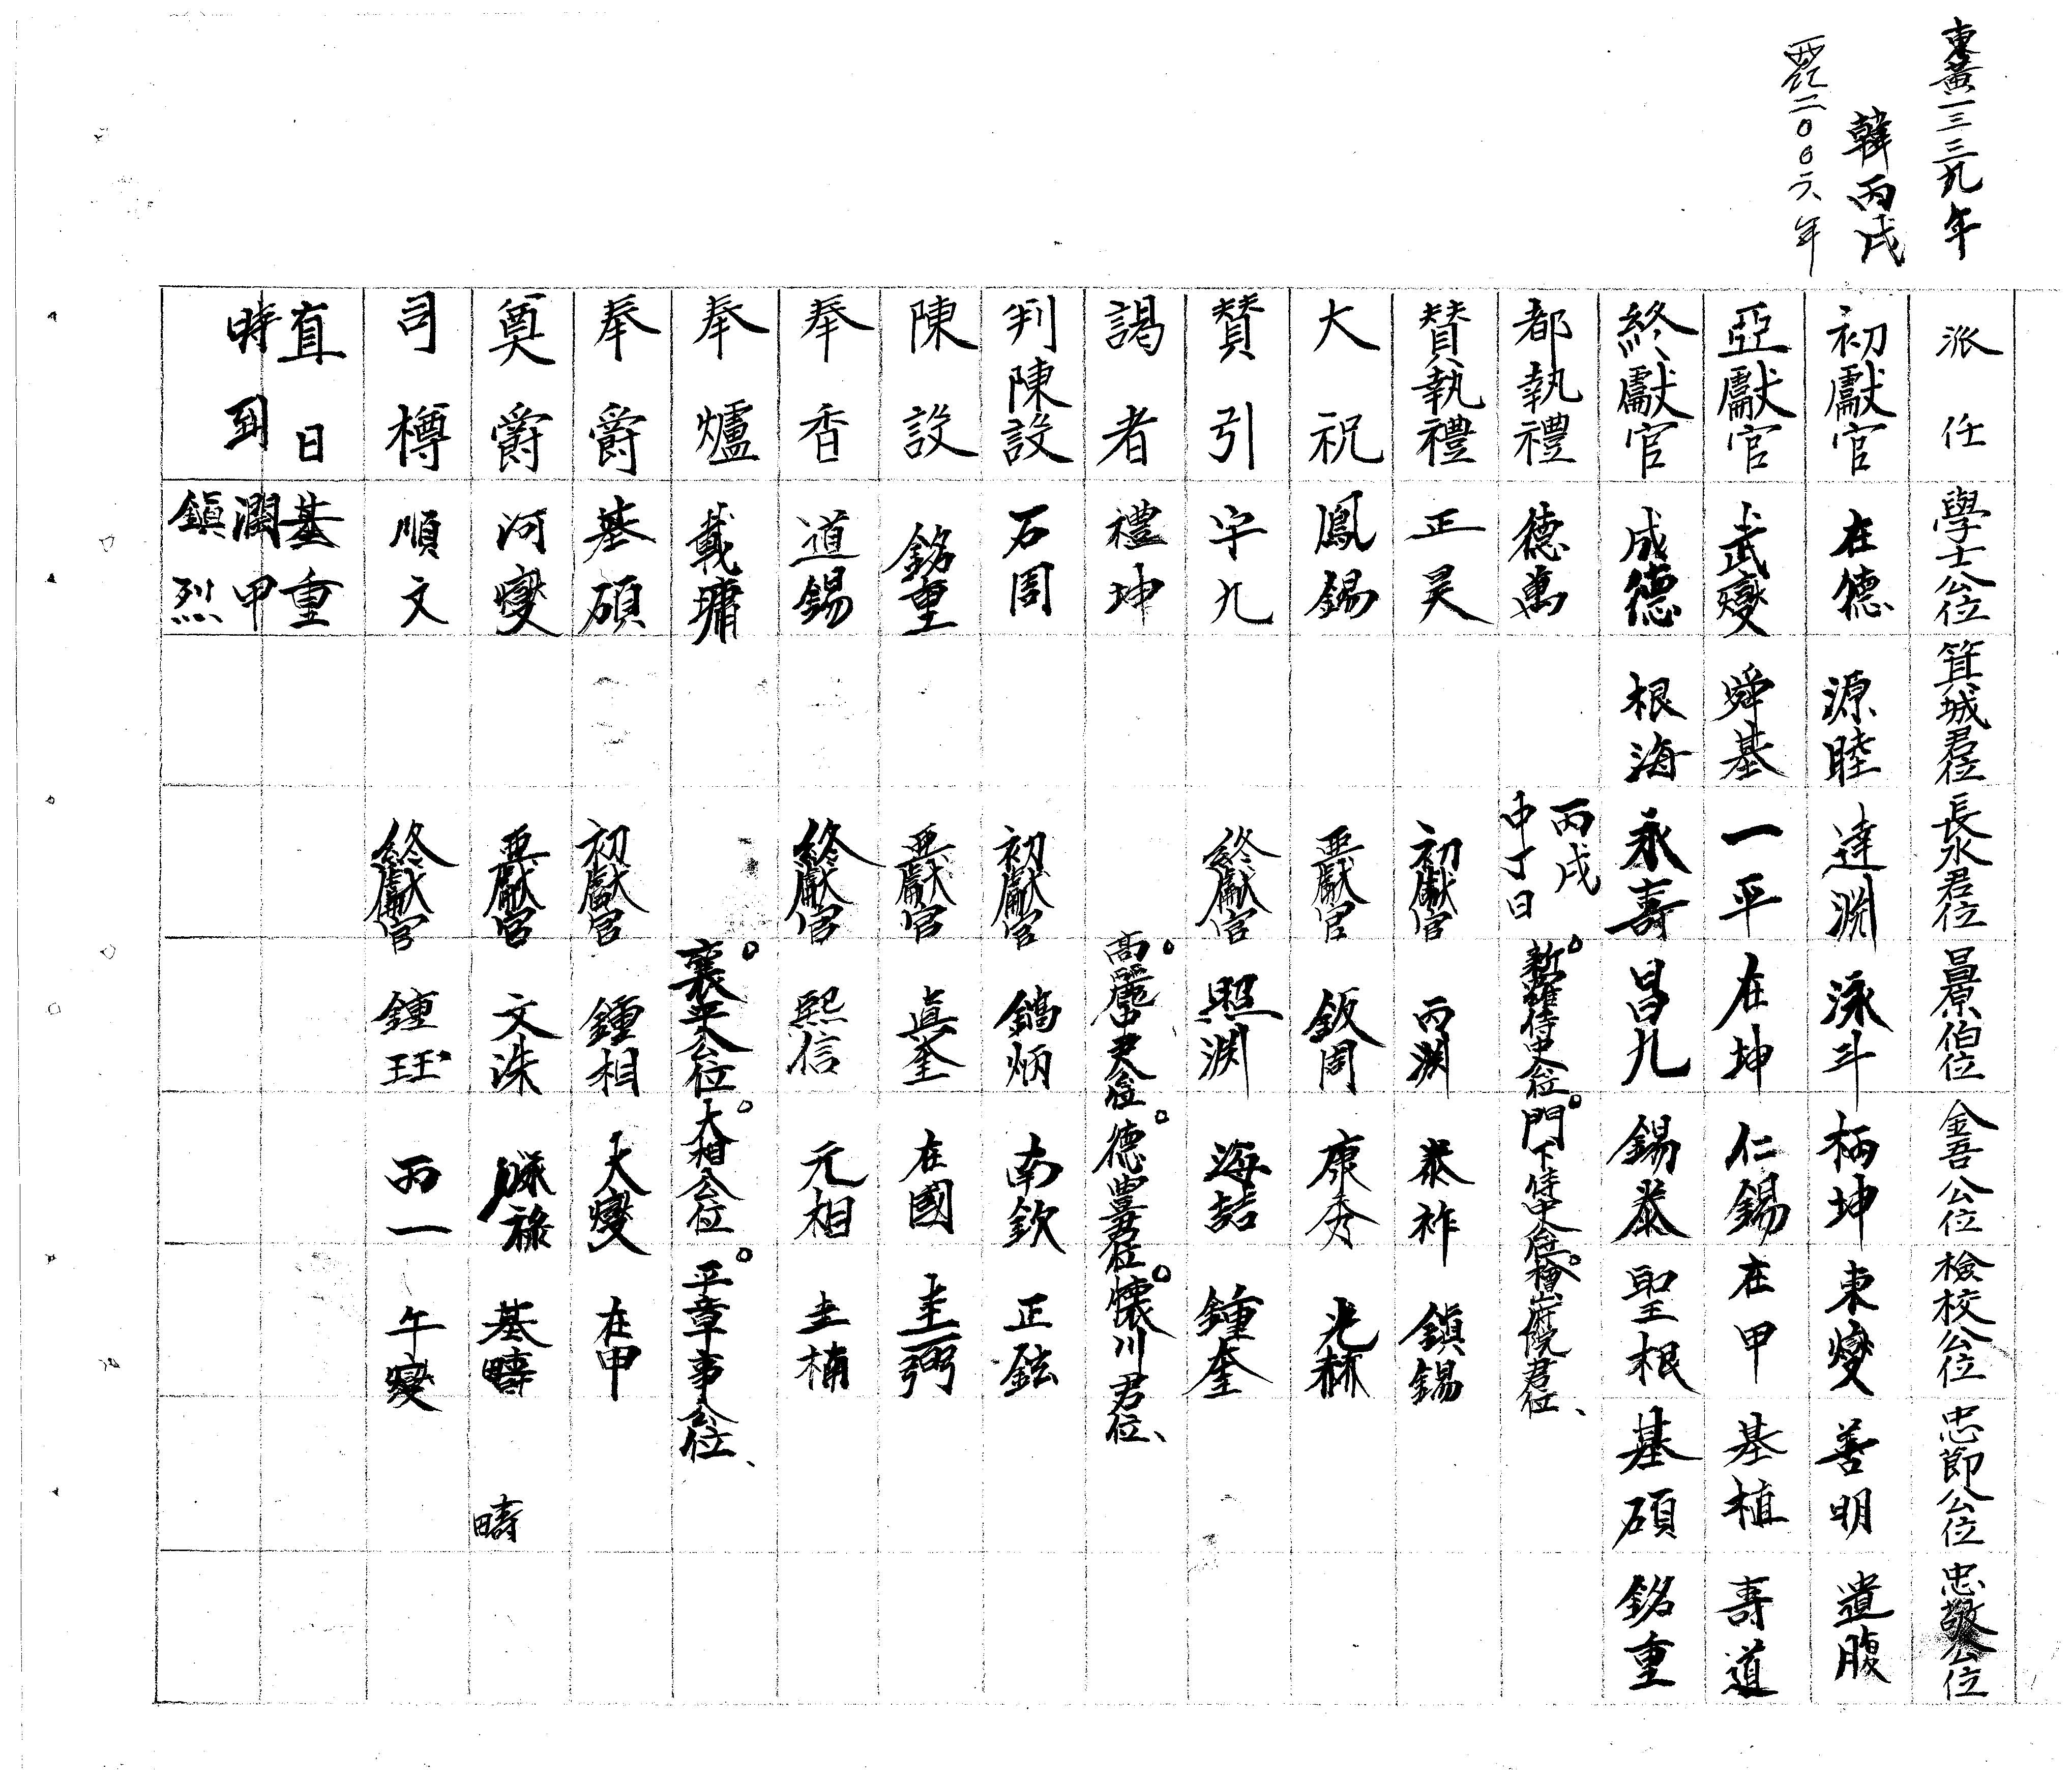 東黃一三三九年
韓丙戌
西紀二００六年
派任 學士公位 箕城君位 長水君位 昌原伯位 金吾公位 檢校公位 忠節公位 忠敬公位
初獻官 在德 源睦 達淵 泳斗 柄坤 東燮 善明 遺腹
亞獻官 武燮 舜基 一平 在坤 仁錫 在甲 基植 壽道
終獻官 成德 根海 永壽 昌九 錫泰 聖根 基碩 銘重
都執禮 德萬
丙戌
中丁日
新羅侍中公位 門下侍中公位 檜山府院君位、
贊執禮 正昊 初獻官 丙淵 泰祚 鎭錫
大祝 鳳錫 亞獻官 鈑周 康秀 光林
贊引 宇九 終獻官 照淵 海喆 鍾奎
謁者 禮坤 高麗中尹公位 德豊君位 懷川君位、
判陳設 石周 初獻官 鎬炳 南欽 正鉉
陳設 銘重 亞獻官 眞奎 在國 圭弼
奉香 道錫 終獻官 熙信 元相 圭楠
奉爐 載墉 襄平公位 大相公位 平章事公位、
奉爵 基碩 初獻官 鍾相 大燮 在甲
奠爵 河燮 亞獻官 文洙 泳祿 基疇
疇
司樽 順文 終獻官 鍾玨 丙一 午燮
直日 基重
時到 潤甲
鎭烈